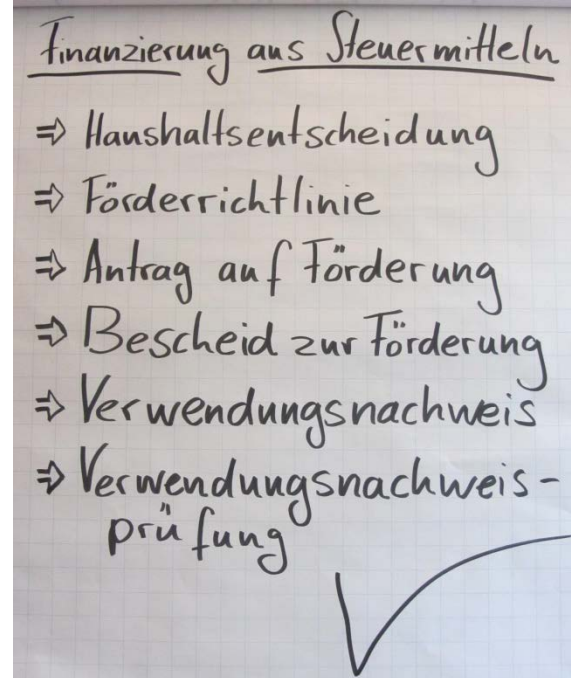 Finanzierung aus Steuermitteln
⇒ Haushaltsentscheidung
⇒ Förderrichtlinie
⇒ Antrag auf Förderung
⇒ Bescheid zur Förderung
⇒ Verwendungsnachweis
⇒ Verwendungsnachweis-
prüfung